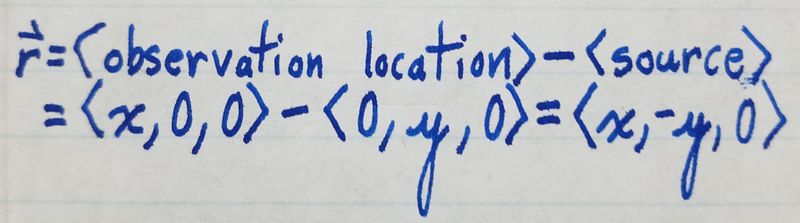 r⃗=⟨observation location⟩−⟨source⟩
=⟨x,0,0⟩−⟨0,y,0⟩=⟨x,-y,0⟩